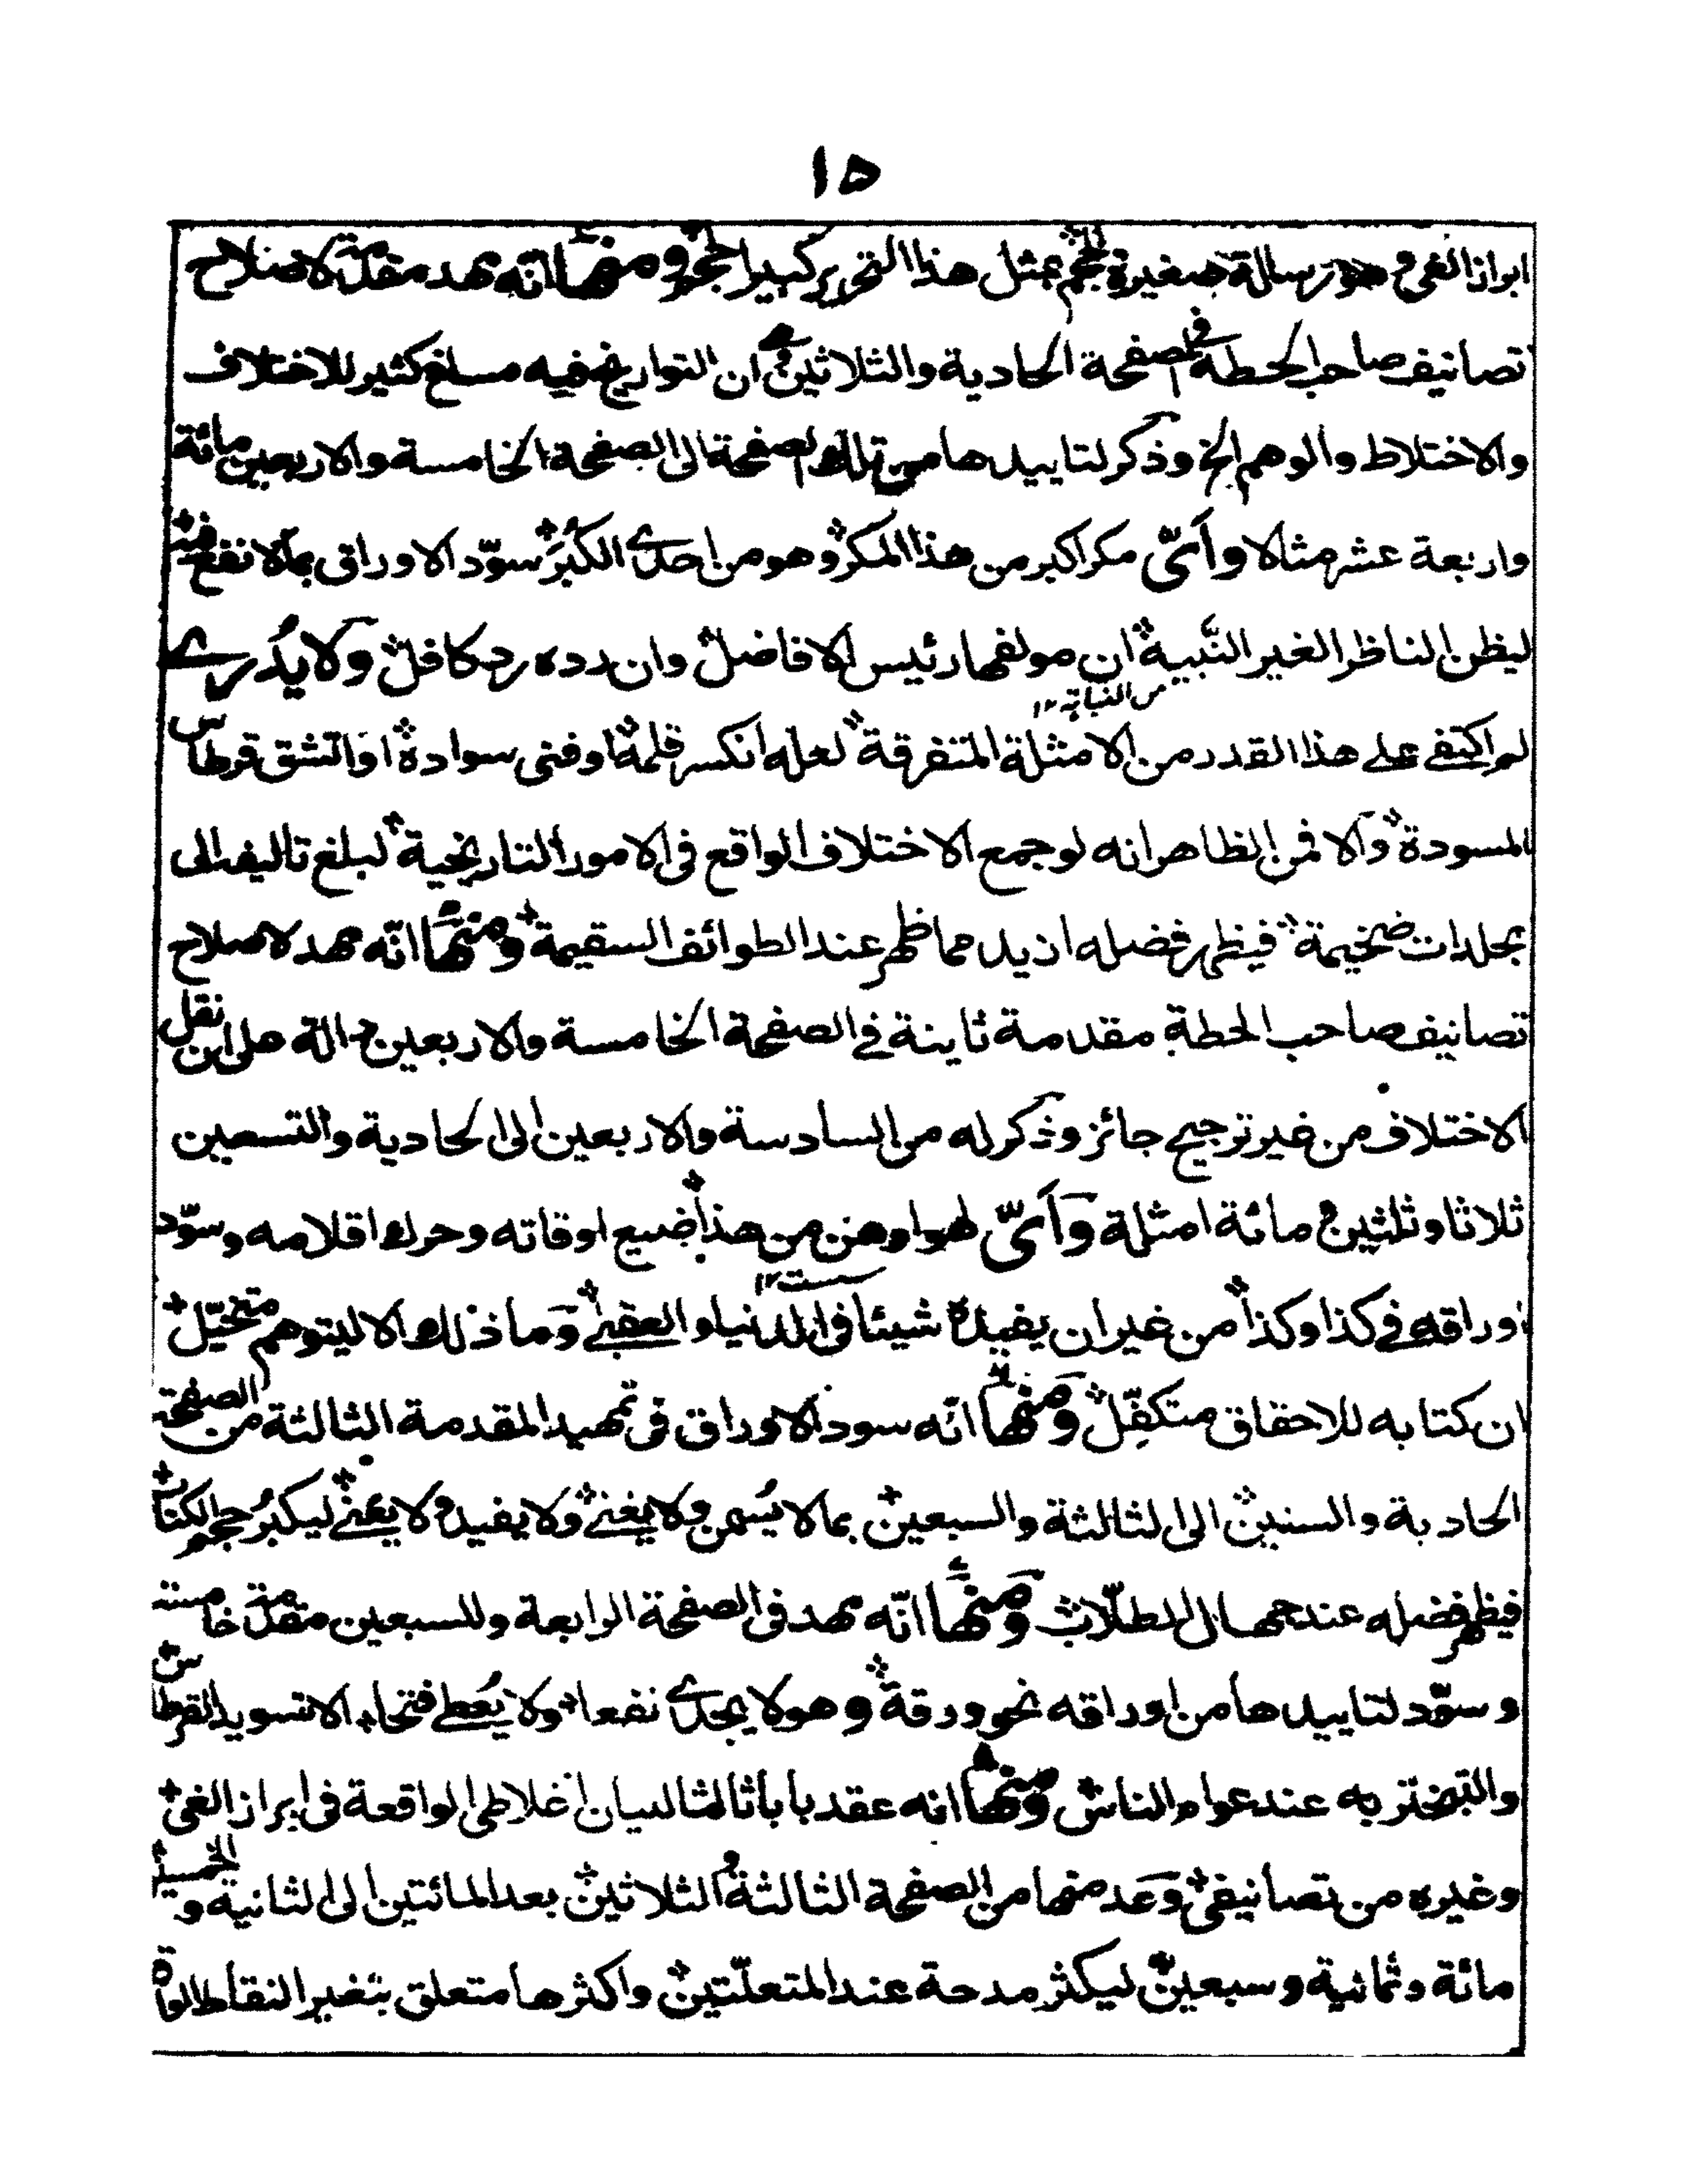 ١٥
ابراز الغى وهو رسالة صغيرة الحجم بمثل هذا التحرير كبير الحجم ومنها انه مهد مقدمة لاصلاح
تصانيف صاحب الحطة فى الصفحة الحادية والثلاثين وهى ان التواريخ فيه مساغ كثير للاختلاف
والاختلاط والوهم الخ وذكر لتاييدها من تلك الصفحة الى الصفحة الخامسة والاربعين مائة
واربعة عشر مثالا وأىّ مكر اكبر من هذا المكر وهو من احدى الكُبَر سوّد الاوراق بما لا نفع فيه
ليظن الناظر الغير النَّبيه ان مولفها رئيس الافاضل وان رده رد كافل ولا يدُرى
لم اكتفى على هذا القدر من الامثلة المتفرقة لعله انكسر قلمه او فنى سواده او انشق قرطاس
المسودة والا فمن الظاهر انه لو جمع الاختلاف الواقع فى الامور التاريخية لبلغ تاليفه الى
مجلدات ضخيمة فيظهر فضله ازيد مما ظهر عند الطوائف السقيمة ومنها انّه مهد لاصلاح
تصانيف صاحب الحطة مقدمة ثانية فى الصفحة الخامسة والاربعين دالة على ان نقل
الاختلاف من غير ترجيح جائز وذكر له من السادسة والاربعين الى الحادية والتسعين
ثلاثا وثلثين ومائة امثلة وأىّ لهو اوهن من هذا ضيع اوقاته وحرك اقلامه وسوّد
اوراقه فى كذا وكذا من غير ان يفيده شيئا فى الدنيا والعقبى وما ذلك الا ليتوهم متخيّل
ان كتابه للاحقاق متكفّل ومنها انّه سود الاوراق فى تمهيد المقدمة الثالثة من الصفحة
الحادية والستين الى الثالثة والسبعين بما لا يُسمن ولا يغنى ولا يفيد ولا يعنى ليكبرُ حجم الكتاب
فيظهر فضله عند جهال الطلّاب ومنها انّه مهد فى الصفحة الرابعة والسبعين مقدمة خامسة
وسوّد لتاييدها من اوراقه نحو ورقة وهو لا يجدى نفعا ولا يُعطى فتحا الا تسويد القرطاس
والتبختر به عند عوام الناس ومنها انه عقد بابا ثالثا لبيان اغلاطى الواقعة فى ابراز الغى
وغيره من تصانيفى وعد منها من الصفحة الثالثة والثلاثين بعد المائتين الى الثانية والخمسين
مائة وثمانية وسبعين ليكثر مدحة عند المتعلّتين واكثرها متعلق بتغير النقاط
من النباهة ١٢
سست ١٢